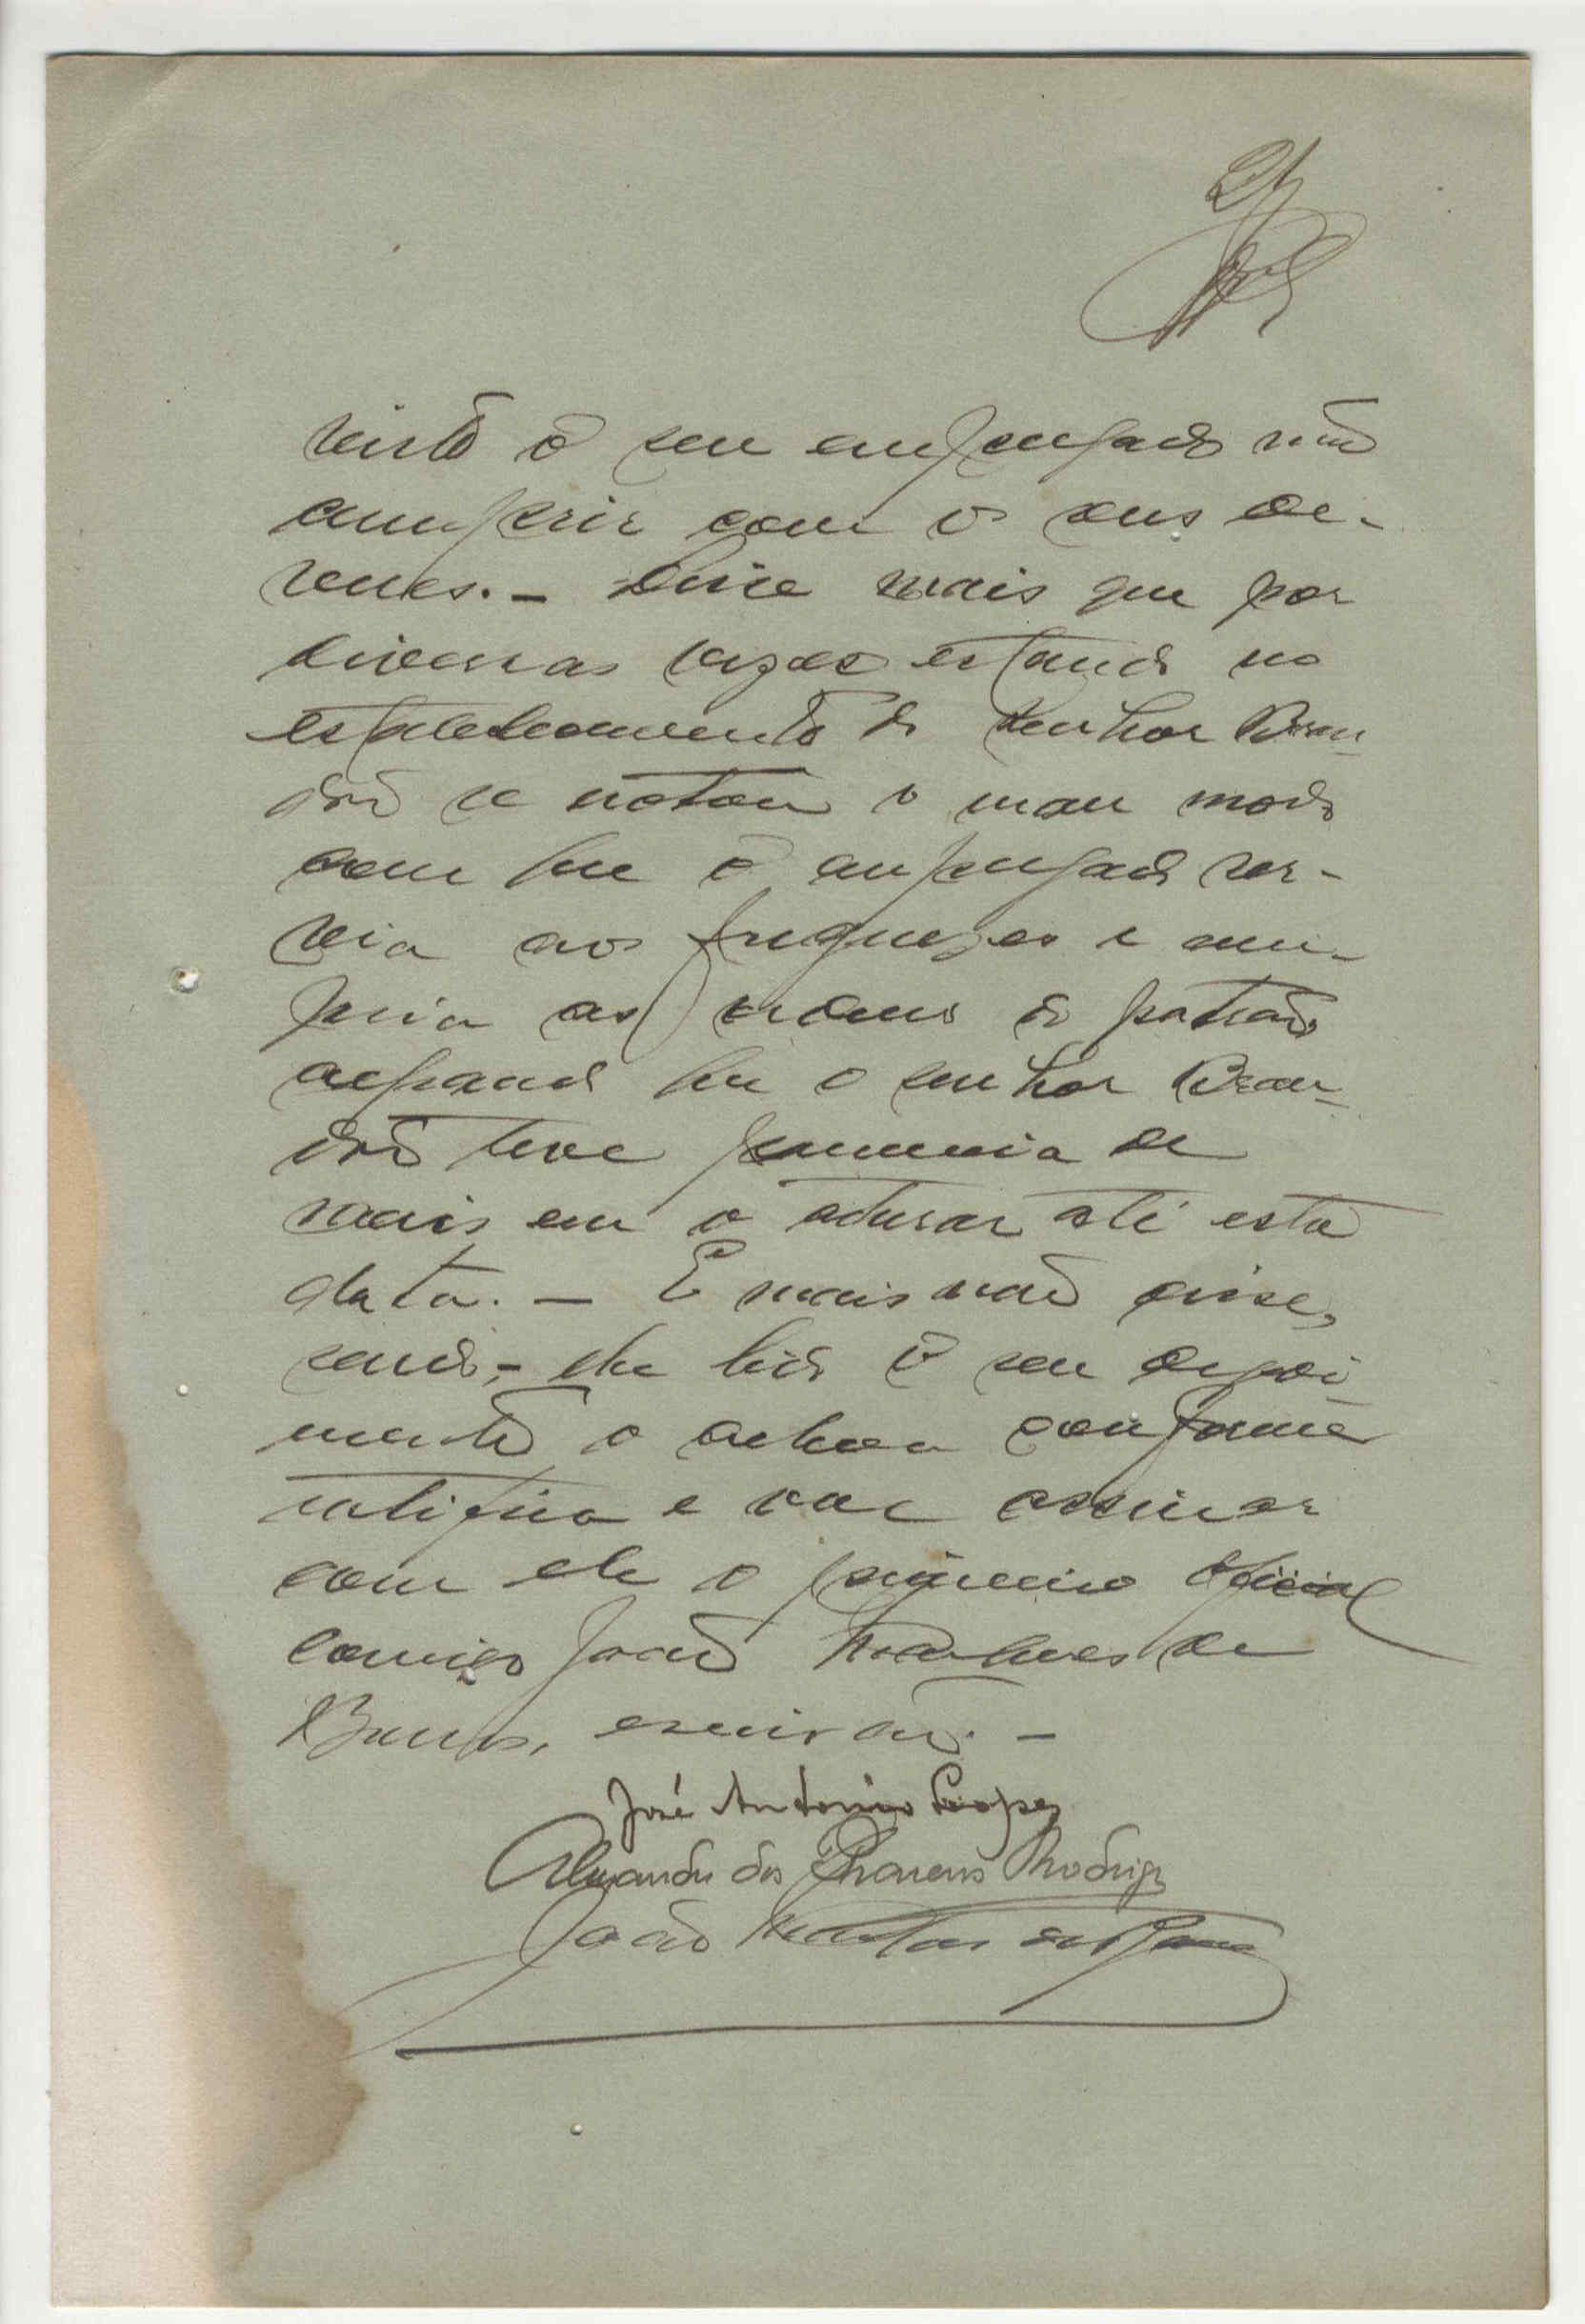 visto o seu empregado não
cumprir com os seus de-
veres. - Disse mais que por
diversas vezes estando no
estabelecimento do senhor Bran-
dão se notou o mau modo
com que o empregado ser-
via aos freguezes e cum-
pria as ordens do patrão
achando que o senhor Bran-
dão teve paciencia de
mais em o aturar até esta
data. - E mais não disse,
sendo-lhe lido o seu depoi-
mento o achou conforme
ratifica e vae assinar
com ele o primeiro oficial
comigo João de
Barros, escrivão. -
José Antonio Lopes
Alexandre dos Rodrigues
João